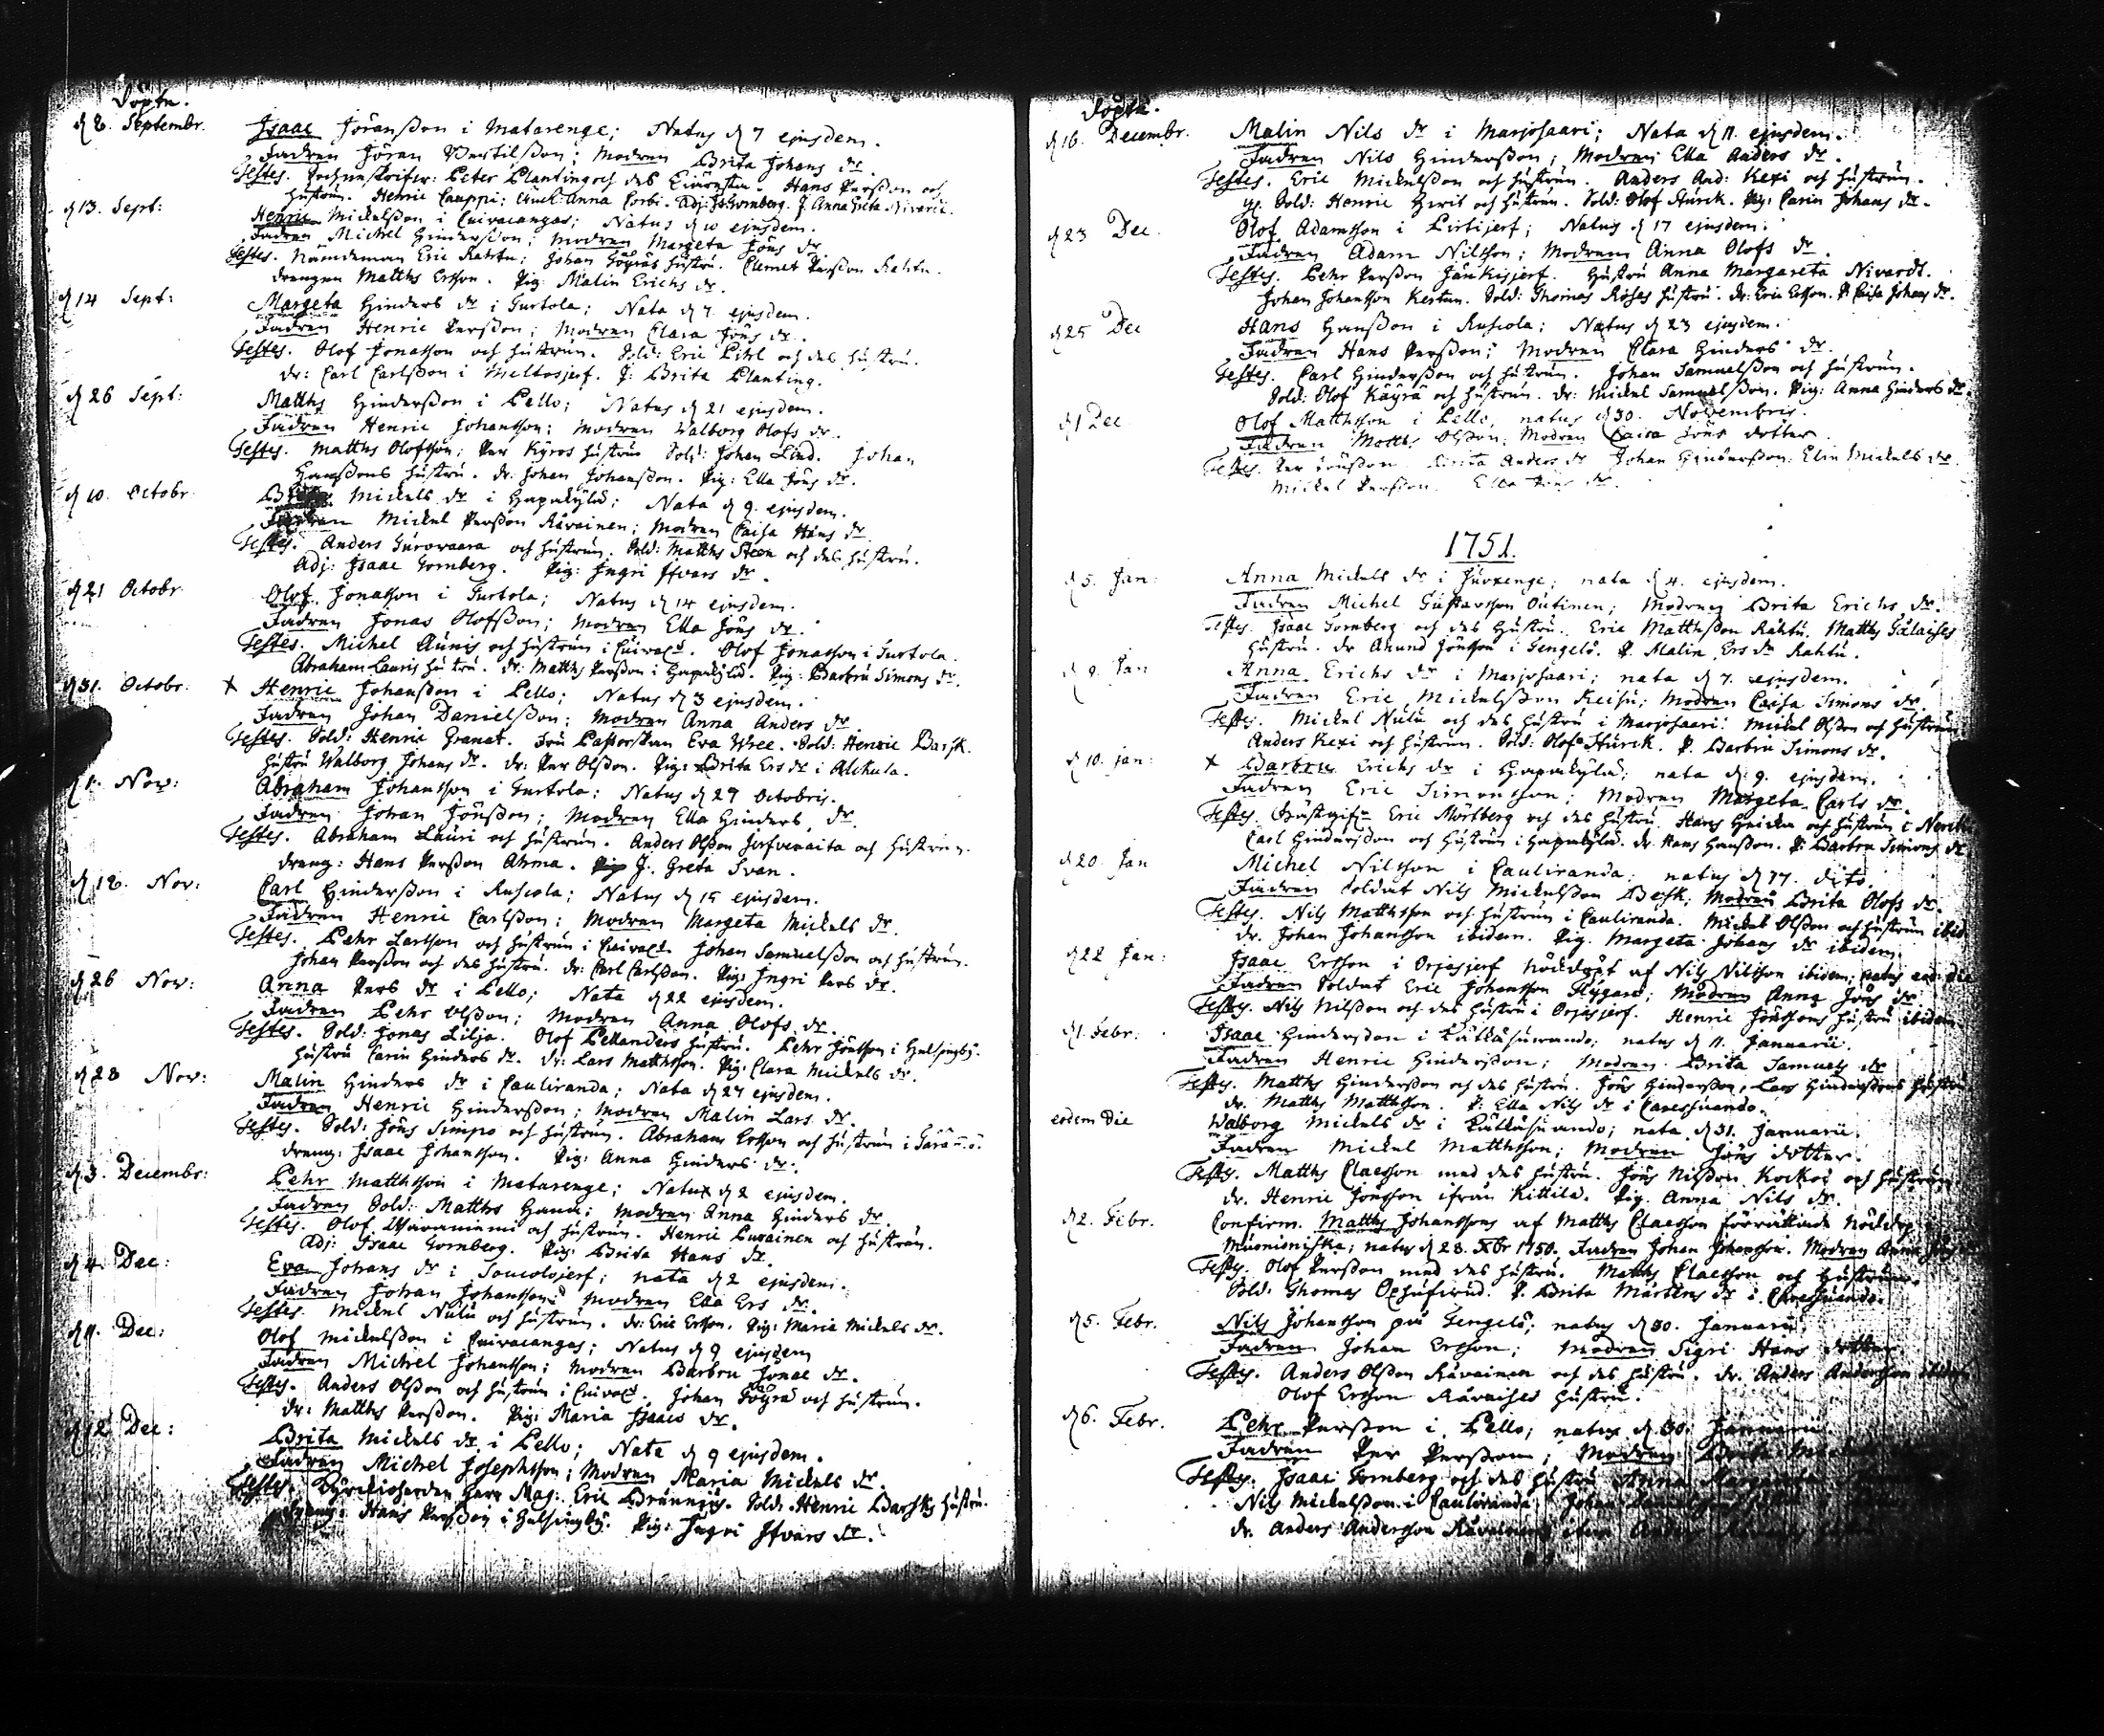 Döpte.
d 8. Septembr. Isaac Jöransson i Matarenge; Natus d 7 ejusdem.
Fadren Jöran Bertilsson; Modren Brita Johans dr.
Testes. Peter Planting och des Hans Persson och
hustrun. Henric Lauppi; Anna Corbi. Adj: Is: Tornberg. J. Anna Greta Nivard.
d 13. Sept: Henric Mickelsson i Cuivacangas; Natus d 10 ejusdem.
Fadren Michel Hindersson; Modren Margeta Jöns dr.
Testes. Nämdeman Eric Rahtu; Johan hustru. Clemet Persson Rahtu.
drengen Matths Ersson. Pig: Malin Erichs dr.
d 14 Sept: Margeta Hinders dr i Turtola; Nata d 7. ejusdem.
Fadren Henric Persson; Modren Clara Jöns dr.
Testes. Olof Jonasson och hustrun. Sold: Eric Pihl och des hustru.
dr: Carl Carlsson i Meltosjerf. J: Brita Planting.
d 26 Sept: Matths Hindersson i Pello; Natus d 21 ejusdem.
Fadren Henric Johansson; Modren Walborg Olofs dr.
Testes. Matths Olofsson; Per Kyrös hustru Sold: Johan Lind. Johan
Hanssons hustru. dr: Johan Johansson. Pig: Ella Jöns dr.
d 10. Octobr. Brita Mickels dr i Hapakylä; Nata d 9. ejusdem.
Fadren Mickel Persson Rävainen; Modren Caisa Hans dr.
Testes. Anders Turovaara och hustrun. Sold: Matths Steen och des hustru.
Adj: Isaac Tornberg. Pig: Ingri Ifvars dr.
d 21 Octobr. Olof Jonasson i Turtola; Natus d 14 ejusdem.
Fadren Jonas Olofsson; Modren Ella Jöns dr.
Testes. Michel Aunis och hustrun i Cuivac. Olof Jonasson i Turtola.
Abraham Lauris hustru. dr: Matths Persson i Hapakylä. Pig: Barbru Simons dr.
d 31. Octobr: + Henric Johansson i Pello; Natus d 3 ejusdem.
Fadren Johan Danielsson; Modren Anna Anders dr.
Testes. Sold: Henric Granat. Fru Pastorskan Eva Wree. Sold: Henric Barsk.
hustru Walborg Johans dr. dr: Per Olsson. Pig: Brita Ers dr i Alckula.
d 1. Nov: Abraham Johansson i Turtola; Natus d 29 Octobris.
Fadren Johan Jönsson; Modren Ella Hinders dr.
Testes. Abraham Lauri och hustrun. Anders Olsson och hustrun.
dreng: Hans Persson Ahma. J. Greta Svan.
d 18. Nov: Carl Hindersson i Ruscola; Natus d 15 ejusdem.
Fadren Henric Carlsson; Modren Margeta Mickels dr.
Testes. Pehr Larsson och hustrun i Cuivac. Johan Samuelsson och hustrun.
Johan Persson och des hustru. dr: Carl Carlsson. Pig: Ingri Pers dr.
d 26 Nov: Anna Pers dr i Pello; Nata d 22 ejusdem.
Fadren Pehr Olsson; Modren Anna Olofs dr.
Testes. Sold: Jonas Lilja. Olof Pellanders hustru. Pehr Jönsson i Helsingby.
hustru Carin Hinders dr. dr: Lars Matthsson. Pig: Clara Mickels dr.
d 28 Nov: Malin Hinders dr i Cauliranda; Nata d 27 ejusdem.
Fadren Henric Hindersson; Modren Malin Lars dr.
Testes. Sold: Jöns Simpo och hustrun. Abraham Ersson och hustrun i
dreng: Isaac Johansson. Pig: Anna Hinders dr.
d 3. Decembr: Pehr Matthsson i Matarenge; Natus d 2 ejusdem.
Fadren Sold: Matths Hana; Modren Anna Hinders dr.
Testes. Olof och hustrun. Henric Purainen och hustrun.
Adj: Isaac Tornberg. Pig: Brita Hans dr.
d 4. Dec: Eva Johans dr i Toucolojerf; nata d 2 ejusdem.
Fadren Johan Johansson; Modren Ella Ers dr.
Testes. Mickel Nulu och hustrun. dr: Eric Ersson. Pig: Maria Mickels dr.
d 11. Dec: Olof Mickelsson i Cuivacangas; Natus d 9 ejusdem
Fadren Michel Johansson; Modren Barbru Jonae dr.
Testes. Anders Olsson och hustrun i Cuivac. Johan och hustrun.
dr: Matths Persson. Pig: Maria Isaacs dr.
d 12 Dec: Brita Mickels dr i Pello; Nata d 9 ejusdem.
Fadren Michel Josephsson; Modren Maria Mickels dr.
Testes. Kyrckioherden Herr Mag: Eric Brunnius. Sold: Henric Barsks hustru.
dreng: Hans Persson i Helsingby. Pig: Ingri Ifvars dr.
Döpte.
d 16. Decembr. Malin Nils dr i Marjosaari; Nata d 11. ejusdem.
Fadren Nils Hindersson; Modren Ella Anders dr.
Testes. Eric Mickelsson och hustrun. Anders And: Kexi och hustrun.
Sold: Henric och hustrun. Sold: Olof Sturck. Pig: Carin Johans dr.
d 23 Dec. Olof Adamsson i Pirtijerf; Natus d 17 ejusdem.
Fadren Adam Nilsson; Modren Anna Olofs dr.
Testes. Pehr Persson Jänkisjerf. Hustru Anna Margareta Nivardt.
Johan Johansson Kertun. Sold: Thomas Roses hustru. dr: Eric Ersson. P: Caisa Johans dr.
d 25 Dec Hans Hansson i Ruscola; Natus d 23 ejusdem.
Fadren Hans Persson; Modren Clara Hinders dr.
Testes. Carl Hindersson och hustrun. Johan Samuelsson och hustrun.
Sold: Olof Käyrä och hustrun. dr: Mickel Samuelsson. Pig: Anna Hinders dr.
d 1 Dec Olof Matthsson i Pello, natus d 30. Novembris.
Fadren Matths Olsson; Modren Caisa Jöns dotter.
Testes. Per Jönsson. Brita Anders dr Johan Hindersson. Elin Mickels dr.
Mickel Persson. Ella Jöns dr.
1751.
d 5. Jan: Anna Mickels dr i Juoxenge; nata d 4. ejusdem.
Fadren Michel Gustavsson Outinen; Modren Brita Erichs dr.
Testes. Isaac Tornberg och des hustru. Eric Matthsson Rahtu. Matths
hustru. dr Akund Jönsson i Tengelö. P. Malin Ers dr Rahtu.
d 9. Jan Anna Erichs dr i Marjosaari; nata d 7. ejusdem.
Fadren Eric Mickelsson Keisu; Modren Caisa Simons dr.
Testes. Mickel Nulu och des hustru i Marjosaari. Mickel Olsson och hustrun
Anders Kexi och hustrun. Sold: Olof Sturck. P. Barbru Simons dr.
d 10. jan: + Barbru Erichs dr i Hapakylä; nata d 9. ejusdem.
Fadren Eric Simonsson; Modren Margeta Carls dr.
Testes. Eric Mörtberg och des hustru. Hans och hustrun i
Carl Hindersson och hustrun i Hapakylä. dr. Hans Hansson. P: Barbru Simons dr
d 20. Jan Michel Nilsson i Cauliranda; natus d 17. dito.
Fadren Soldat Nils Mickelsson Besk; Modren Brita Olofs dr.
Testes. Nils Matthsson och hustrun i Cauliranda. Mickel Olsson och hustrun ibid
dr. Johan Johansson ibidem. Pig. Margeta Johans dr ibidem.
d 22 Jan: Isaac Ersson i Orjasjerf nöddöpt af Nils Nilsson ibidem; natus eod: die
Fadren Soldat Eric Johansson Flygare; Modren Anna Jöns dr.
Testes. Nils Nilsson och des hustru i Orjasjerf. Henric Jönssons hustru ibidem.
d 1. Febr: Isaac Hindersson i Kätkäsuvando; natus d 11. Januarii.
Fadren Henric Hindersson; Modren Brita Samuels dr
Testes. Matths Hindersson och des hustru. Jöns Hindersson, Lars Hinderssons hustru
dr. Matths Matthsson. P: Ella Nils dr i Caresuando.
eodem Die Walborg Mickels dr i Kätkäsuando; nata d 31. Januarii.
Fadren Mickel Matthsson; Modren Jöns dotter.
Testes. Matths Claesson med des hustru. Jöns Nilsson Kockoi och hustrun
dr. Henric Jönsson ifrån Kittilä. Pig. Anna Nils dr.
d 2. Febr. Confirm. Matths Johanssons af Matths Claesson förrättade nöddop
Muonioniska; natus d 28. Xbr 1750. Fadren Johan Johansson. Modren Anna
Testes. Olof Persson med des hustru. Matths Claesson och hustrun.
Sold: Thomas P. Brita Mårtens dr i Caresuando.
d 5. Febr. Nils Johansson på Tengelö; natus d 30. Januarii.
Fadren Johan Ersson; Modren Sigri Hans dotter
Testes. Anders Olsson Rävainen och des hustru. dr. Anders Andersson ibidem
Olof Ersson Rävaises hustru.
d 6. Febr. Pehr Persson i Pello; natus d 30. Januarii.
Fadren Per Persson; Modren Brita
Testes. Isaac Tornberg och des hustru Anna Margareta
Nils Mickelsson i Cauliranda. Johan
dr. Anders Andersson Rävainen